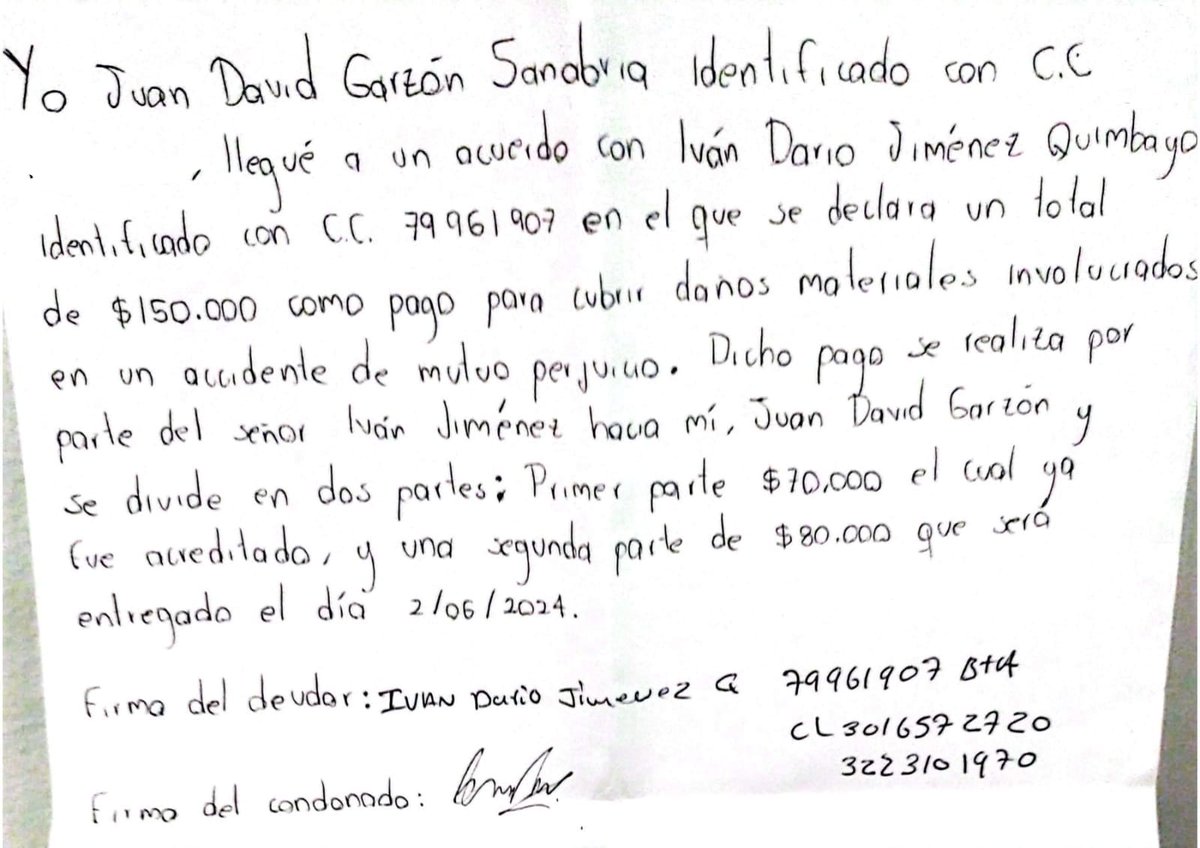 Yo Juan David Garzón Sanabria identificado con C.C
, llegué a un acuerdo con Iván Dario Jiménez Quimbayo
identificado con C.C. 79961907 en el que se declara un total
de $150.000 como pago para cubrir daños materiales involucrados
en un accidente de mutuo perjuicio. Dicho pago se realiza por
parte del señor Iván Jiménez hacia mí, Juan David Garzón y
se divide en dos partes: Primer parte $70.000 el cual ya
fue acreditado, y una segunda parte de $80.000 que será
entregado el día 2/06/2024.
Firma del deudor: IVAN Dario Jimenez Q 79961907 Bta
CL 3016572720
3223101970
Firma del condonado: